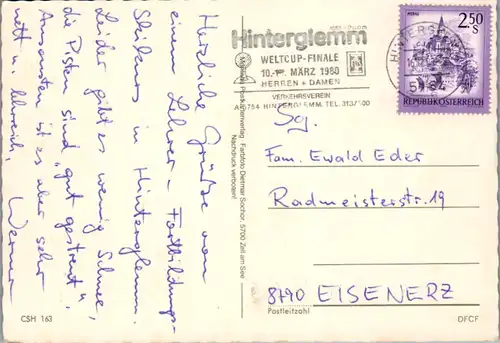 Herzliche Grüße von
einem Lehrer-Fortbildungs-
Skikurs in Hinterglemm.
Leider gibt es wenig Schnee,
die Pisten sind "gut gestreut",
Ansonsten ist es aber sehr
nett u. lehrreich,
Werner
CSH 163
Postkartenverlag Farbfoto Dietmar Sochor, 5700 Zell am See
Nachdruck verboten!
Hinterglemm
WELTCUP-FINALE
MÄRZ 1980
HERREN + DAMEN
VERKEHRSVEREIN
HINTERGLEMM. TEL.
2.50 S
REPUBLIK ÖSTERREICH
Fam. Ewald Eder
Radmeisterstr. 19
8790 EISENERZ
Postleitzahl
DFCF